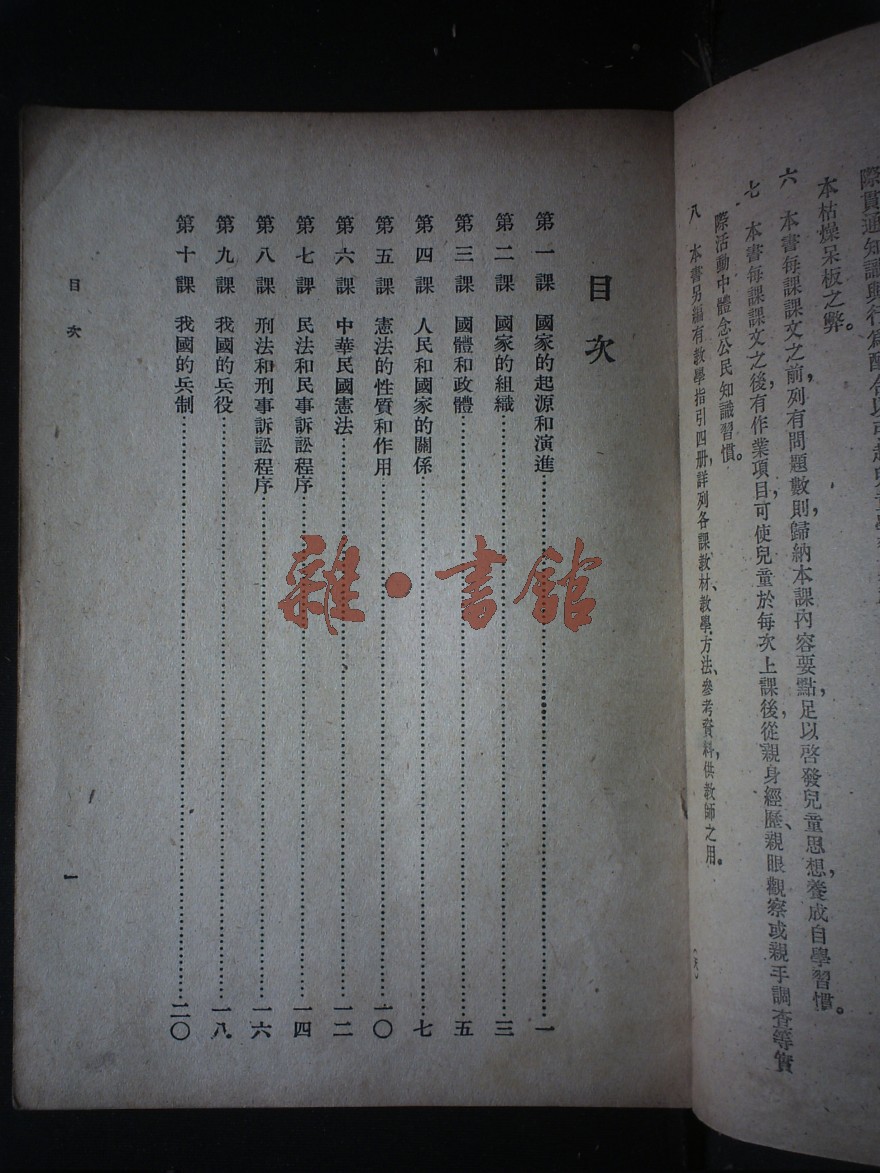 本枯燥呆板之弊。
六　本書每課課文之前，列有問題數則歸納本課內容要點，足以啓發兒童思想，養成自學習慣。
七　本書每課課文之後，有作業項目，可使兒童於每次上課後，從親身經歷、親眼觀察或親手調查等實
際活動中體念公民知識習慣。
八　本書另編有教學指引四册，詳列各課教材、教學方法、參考資料，供教師之用。
目次
第一課　國家的起源和演進……一
第二課　國家的組織……三
第三課　國體和政體……五
第四課　人民和國家的關係……七
第五課　憲法的性質和作用……一〇
第六課　中華民國憲法……一二
第七課　民法和民事訴訟程序……一四
第八課　刑法和刑事訴訟程序……一六
第九課　我國的兵役……一八
第十課　我國的兵制……二〇
目次
一
雜·書館